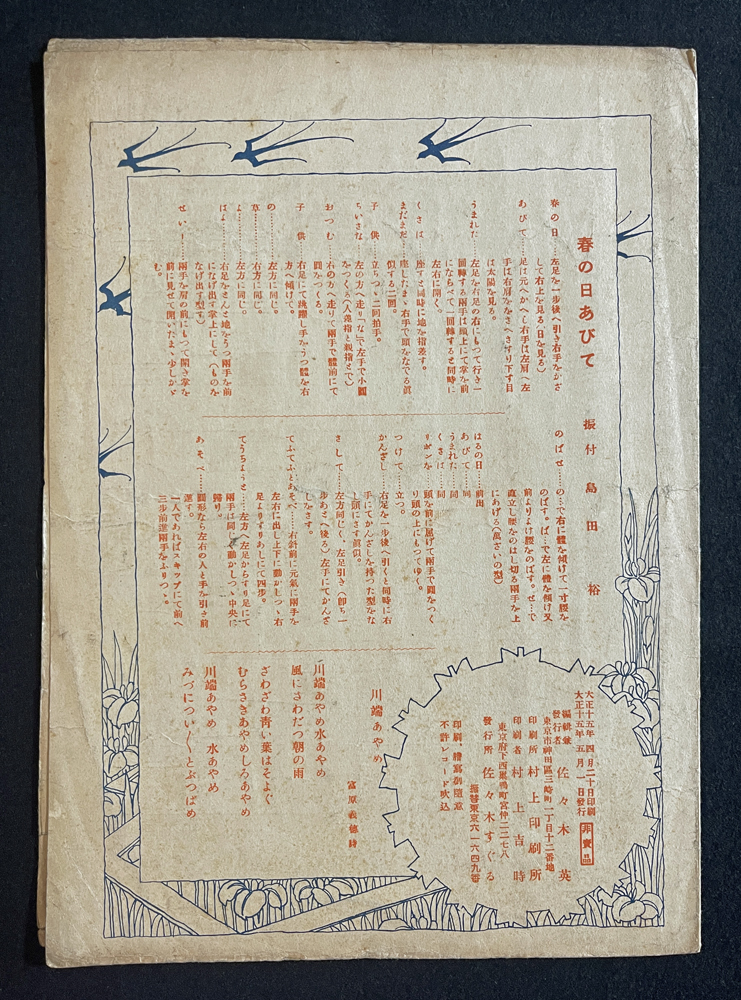 春の日あびて
振付 島田 裕
春の日……左足を一歩後へ引き右手をかざ
して右上を見る(日を見る)
あびて……足は元へかへし右手は左肩へ左
手は右肩ををさへさすり下す目
は太陽を見る。
うまれた……左足を右足の右にもつて行き一
回轉する兩手は頭上にて掌を前
にならべて一回轉すると同時に
左右に開く。
くさは……座すと同時に地を指差す。
まだまだ……座したまゝ右手で頭をなでる眞
似する二回。
子供……立ちつゝ二回拍手。
ちいさな……左の方へ走り「な」で左手で小圓
をつくる(人差指と親指とで)
おつむ……右の方へ走りて兩手で體前にて
圓をつくる。
子供……右足にて跳躍し手をうつ體を右
方へ傾けて。
の……左方に同じ。
草……右方に同じ。
よ……左方に同じ。
はよ……右足をとんと地をうつ兩手を前
になげ出す掌上にして(ものを
なげ出す型す)
せい……兩手を肩の前にもつて開き掌を
前に見せて開いたまゝ少しかゞ
む。
のばせ……の…で右に體を傾けて一寸腰を
のばす。ば…で左に體を傾け又
前よりよけ腰をのばす。せ…で
直立し腰をのはし切る兩手を上
にあげる(萬ざいの型)
はるの日……前出
あびて……同
うまれた……同
くさは……同
リボンを……頭を前に屈げて兩手で圓をつく
り頭の上にもつてゆく。
つけて……立つ。
かんざし……右足を一歩後へ引くと同時に右
手にてかんざしを持つた型をな
し頭にさす眞似。
さして……左方同じく、左足引き(即ち一
歩あさへ後る)左手にてかんざ
しをさす。
てふてふとあそべ……右斜前に元氣に兩手を
左右に出し上下に動かしつゝ右
足よりすりあしにて四歩。
てうちようと……左方へ左足からすり足にて
兩手は同じく動かしつゝ中央に
歸り。
あそべ……圓形なら左右の人と手を引き前
進す。
一人であればスキツプにて前へ
三歩前進兩手をふりつゝ。
川端あやめ
富原義德詩
川端あやめ水あやめ
風にさわだつ朝の雨
ざわざわ靑い葉はそよぐ
むらさきあやめしろあやめ
川端あやめ 水あやめ
みづについ〱とぶつばめ
大正十五年四月二十日印刷
大正十五年五月一日發行
非賣品
編輯兼
發行者 佐々木英
東京市神田區三崎町一丁目十二番地
印刷所 村上印刷所
印刷者 村上吉時
東京府下西巢鴨町宮仲二二七八
發行所 佐々木すぐる
振替東京六一六四九番
印刷
不許レコード吹込